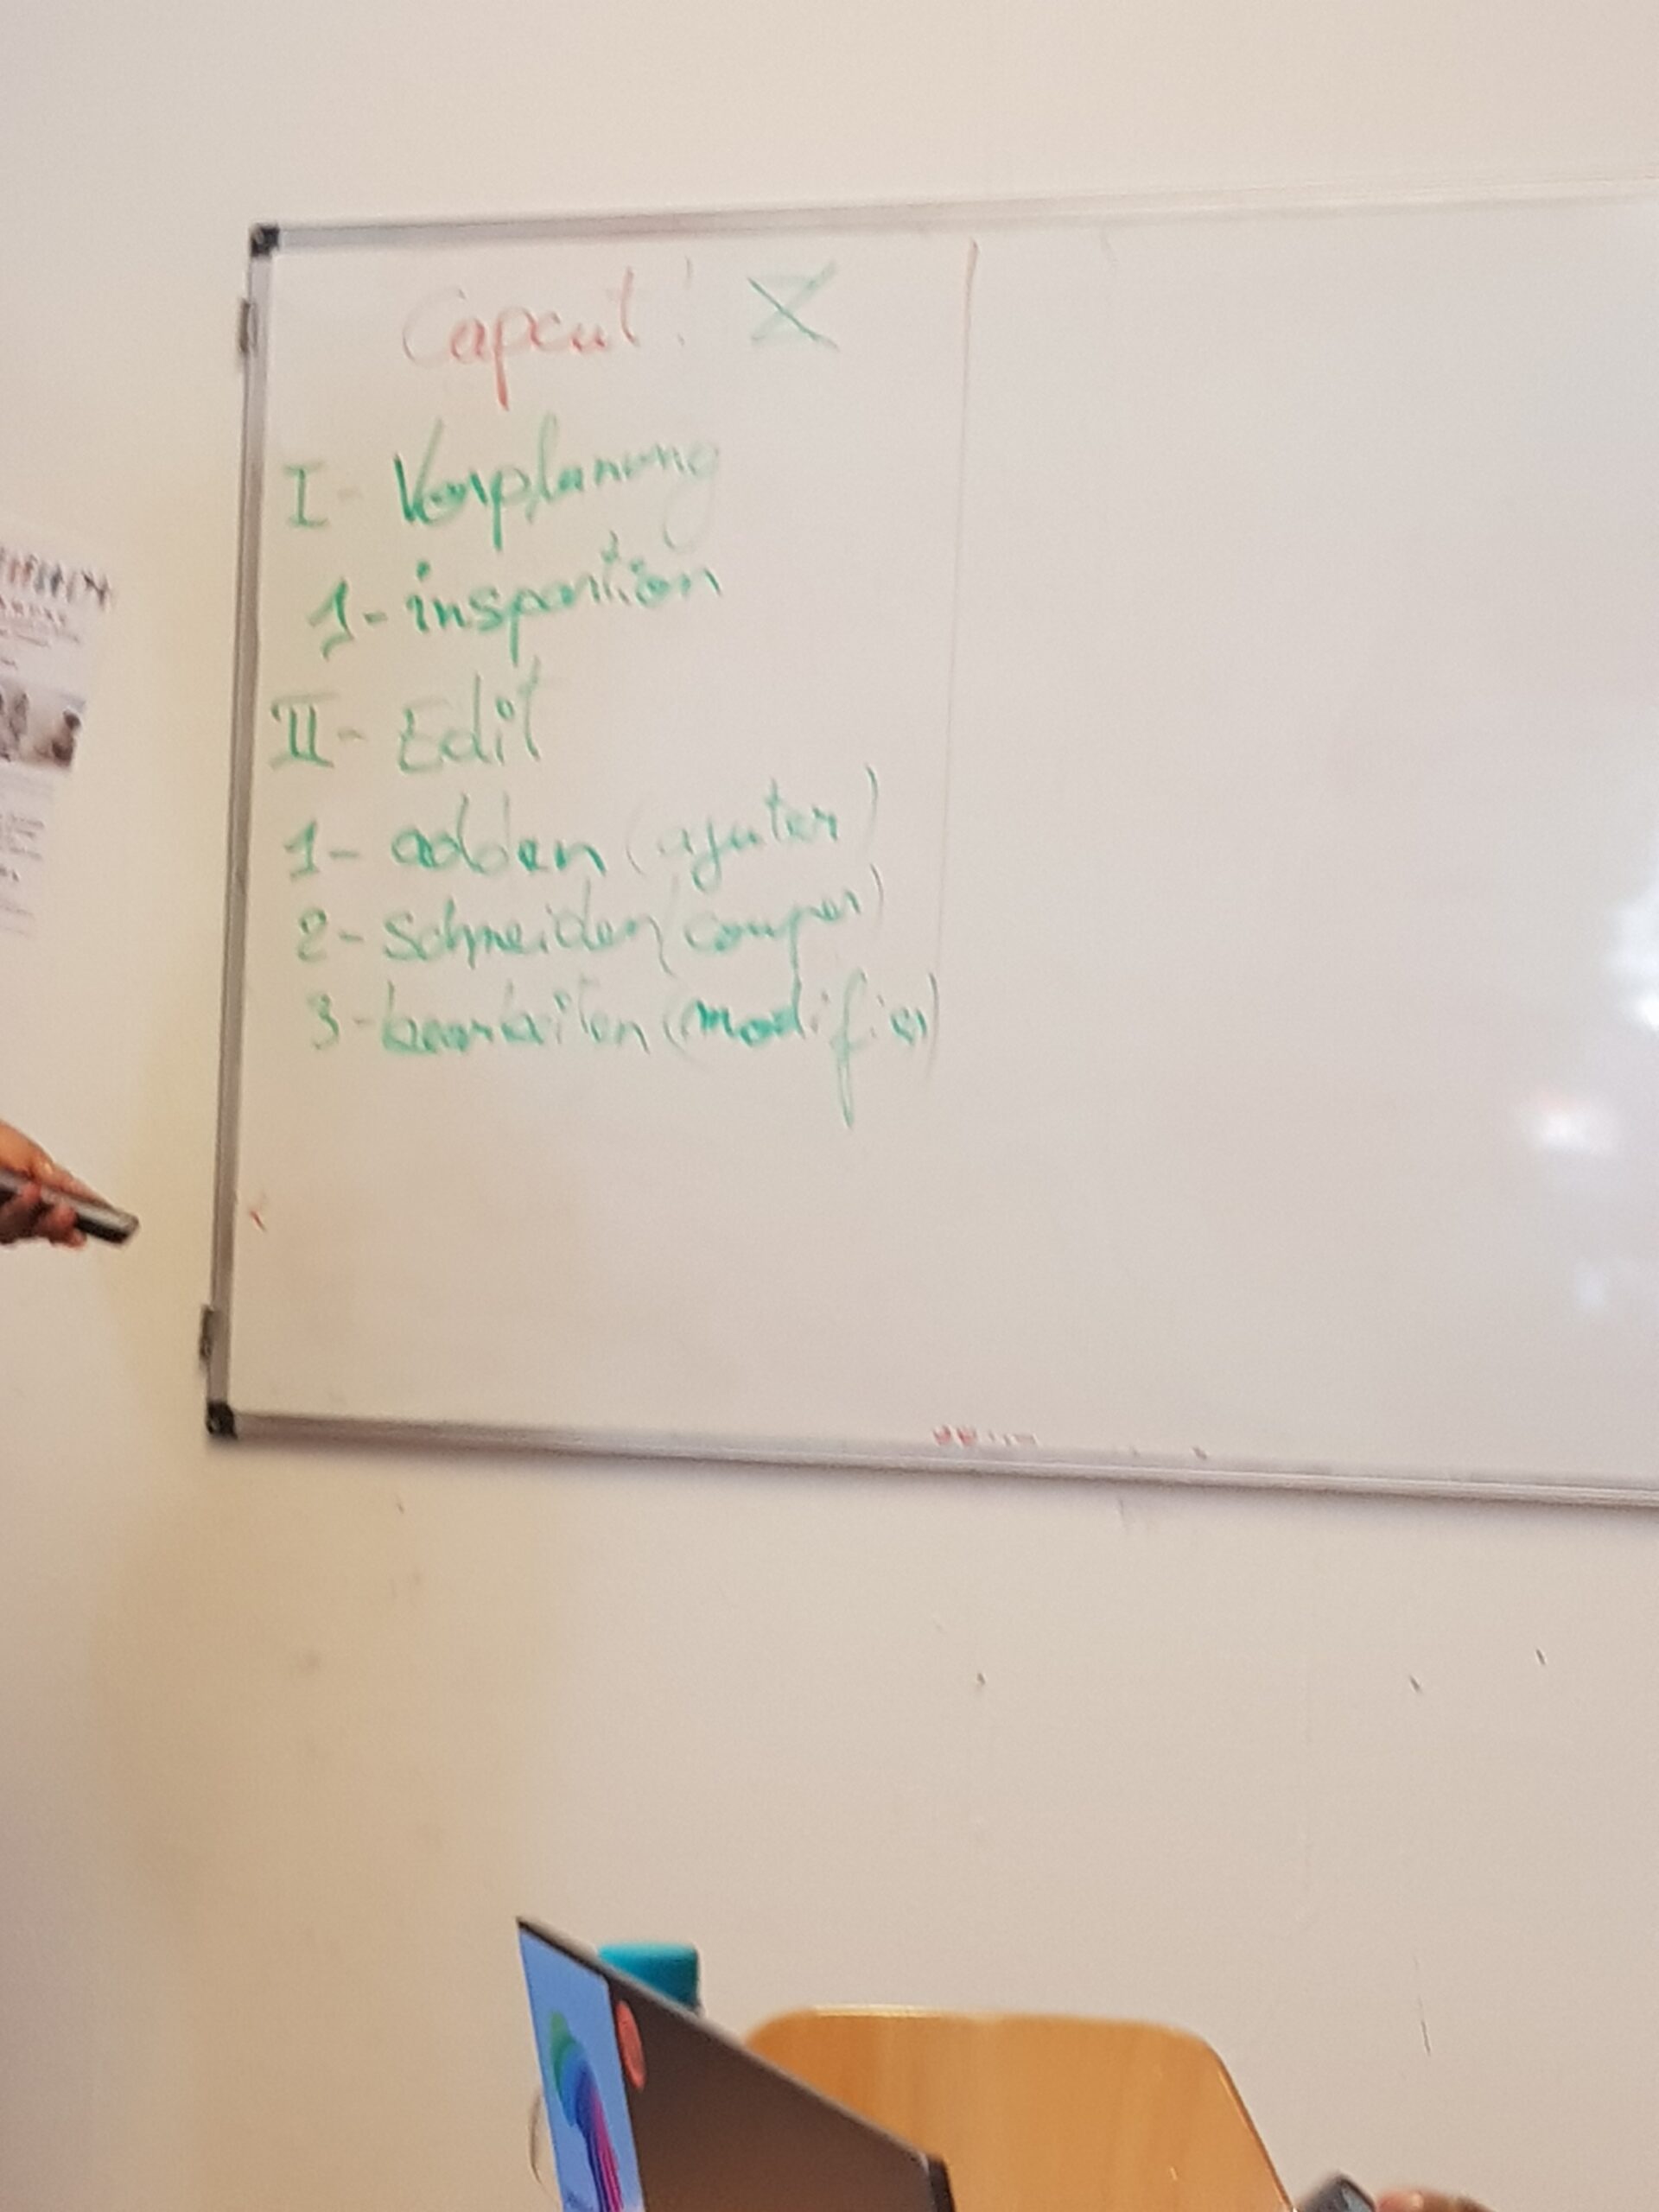 Capcut!
I- Vorplanung
1- inspartion
II- Edit
1- adden (ajuter)
2- Schneiden (couper)
3- bearbeiten (modifier)